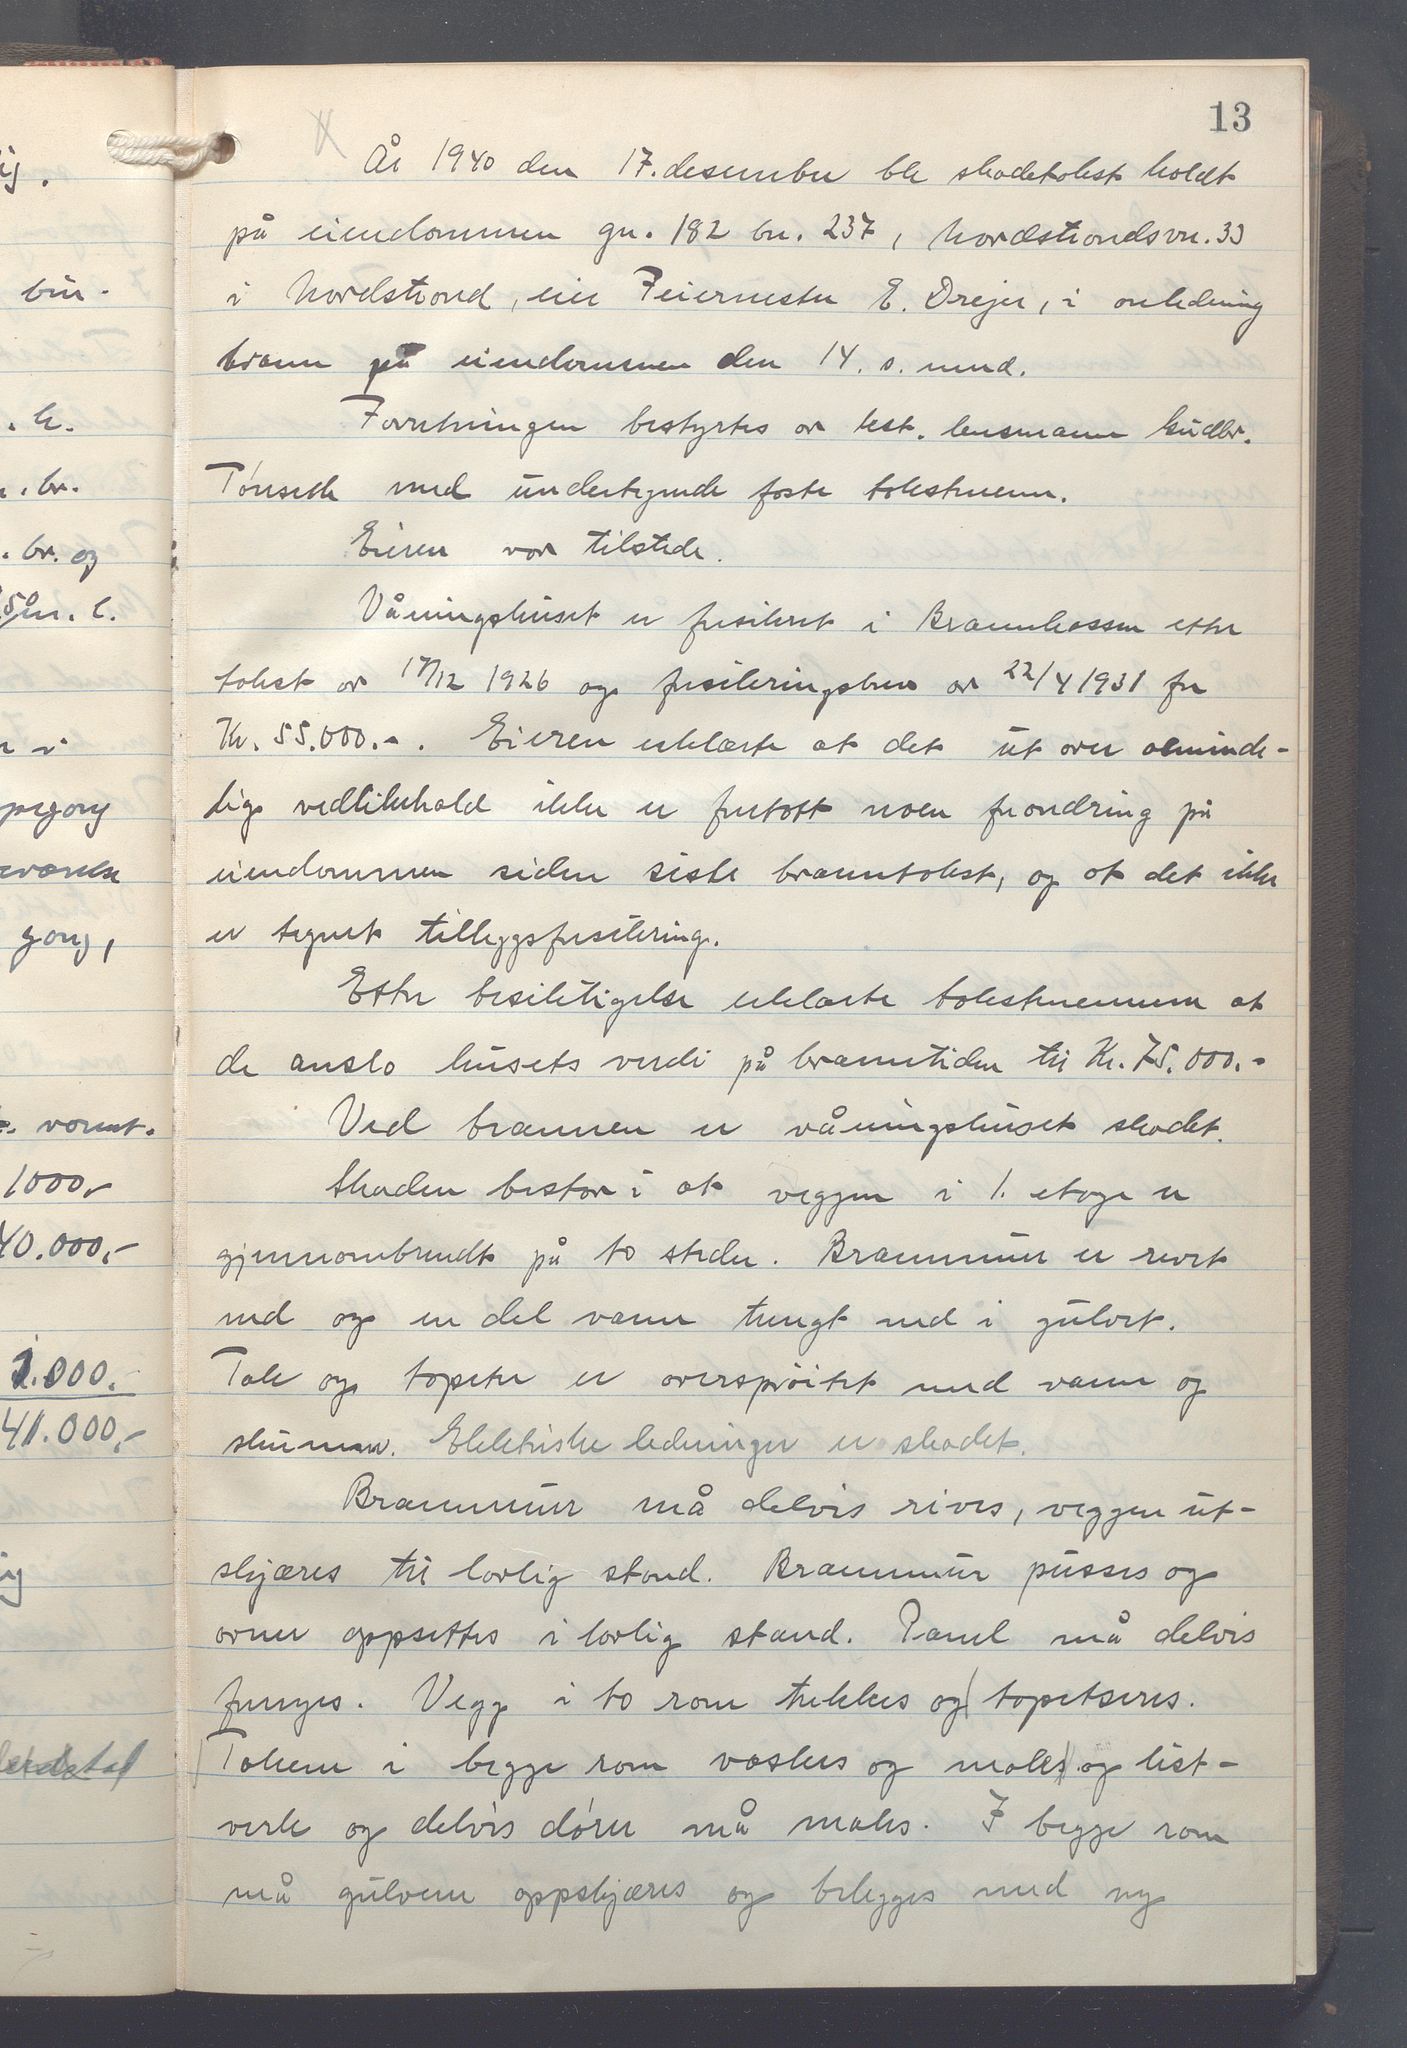 13
År 1940 den 17. desember ble skadetakst holdt
på eiendommen gn. 182 bn. 237, Nordstrandsvn. 33
i Nordstrand, eier Feiermester E. Drejer, i anledning
brann på eiendommen den 14. s. mnd.
Forretningen bestyrtes av best. lensmann Gudbr.
Tønseth med undertegnede faste takstmenn.
Eieren var tilstede.
Våningshuset er forsikret i Brannkassen etter
takst av 17/12 1926 og forsikringsbrev av 22/4 1931 for
Kr. 55.000.-. Eieren erklærte at det ut over alminde-
lig vedlikehold ikke er foretatt noen forandring på
eiendommen siden siste branntakst, og at det ikke
er tegnet tilleggsforsikring.
Etter besiktigelse erklærte takstmennene at
de anslo husets verdi på branntiden til Kr. 75.000.-
Ved brannen er våningshuset skadet.
Skaden bestar i at veggen i 1. etage er
gjennombrendt på to steder. Brannmur er revet
ned og en del vann trengt ned i gulvet.
Tak og tapeter er oversprøitet med vann og
skummer. Elektriske ledninger er skadet.
Brannmur må delvis rives, veggen ut-
skjæres til lovlig stand. Brannmur pusses og
ovner oppsettes i lovlig stand. Panel må delvis
fornyes. Vegg i to rom trekkes og tapetseres.
Takene i begge rom vaskes og males og list-
verk og delvis dører må males. I begge rom
må gulvene oppskjæres og belegges med ny